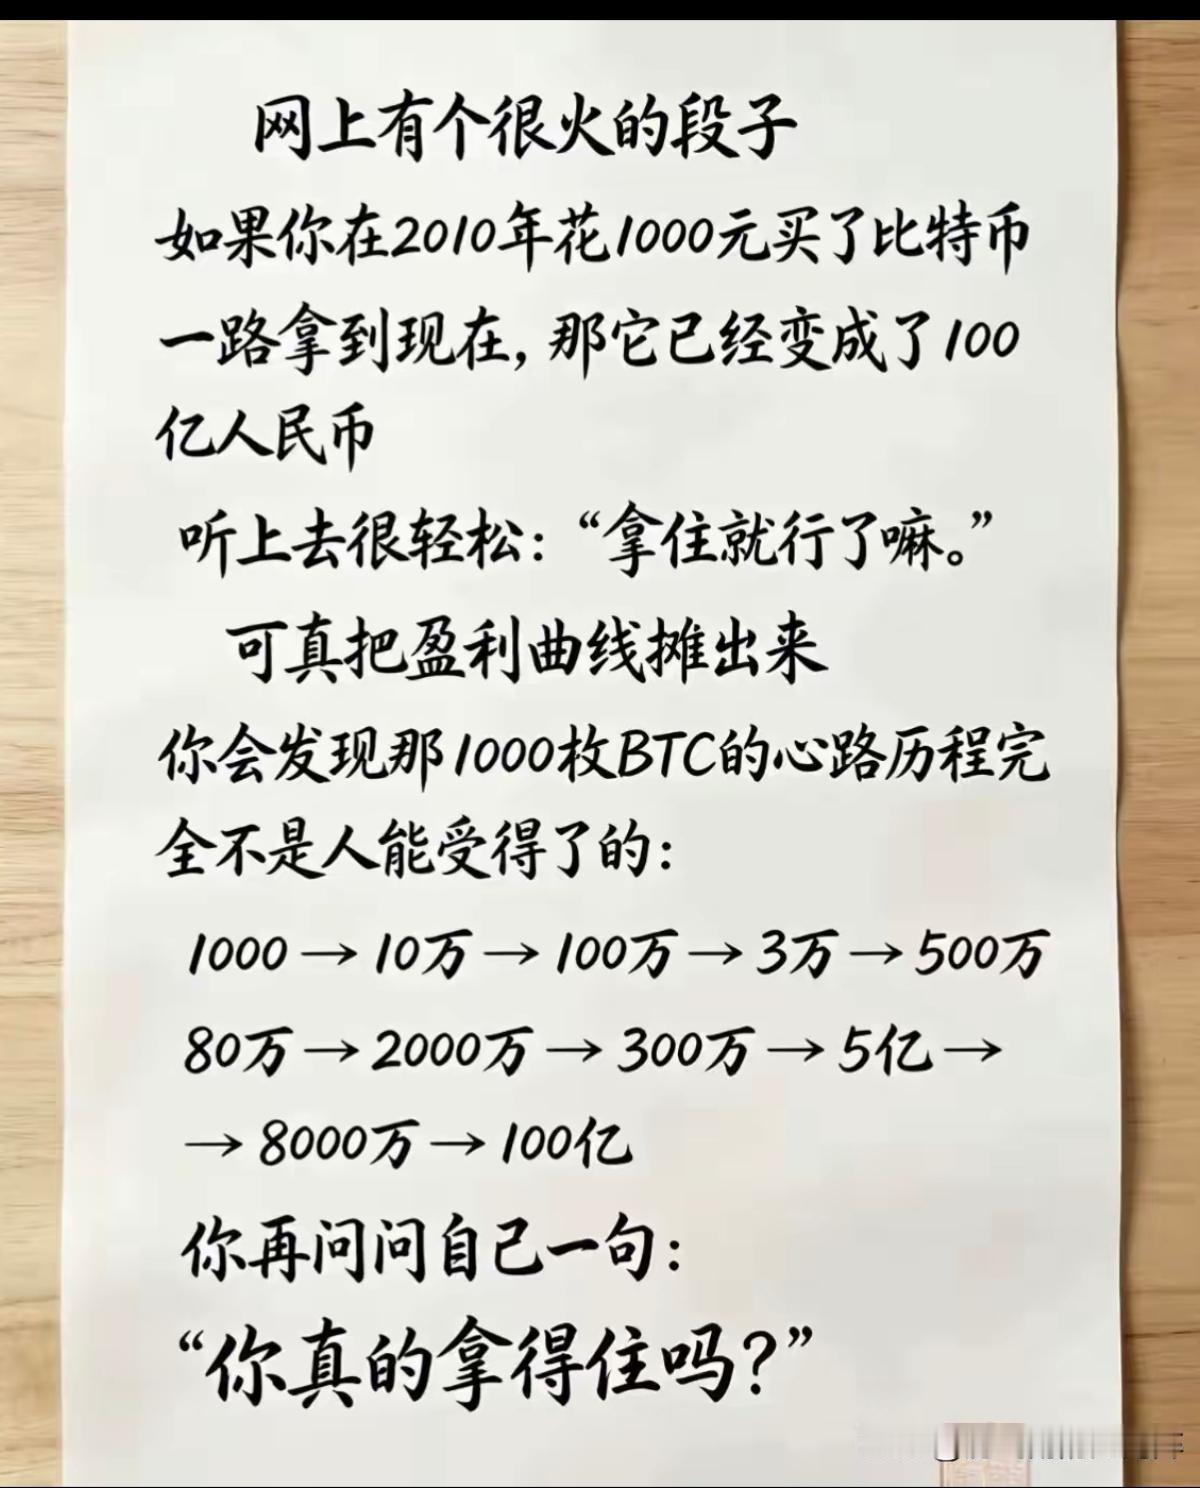 网上有个很火的段子
如果你在2010年花1000元买了比特币
一路拿到现在，那它已经变成了100
亿人民币
听上去很轻松：“拿住就行了嘛。”
可真把盈利曲线摊出来
你会发现那1000枚BTC的心路历程完
全不是人能受得了的：
1000→10万→100万→3万→500万
80万→2000万→300万→5亿→
→8000万→100亿
你再问问自己一句：
“你真的拿得住吗？”